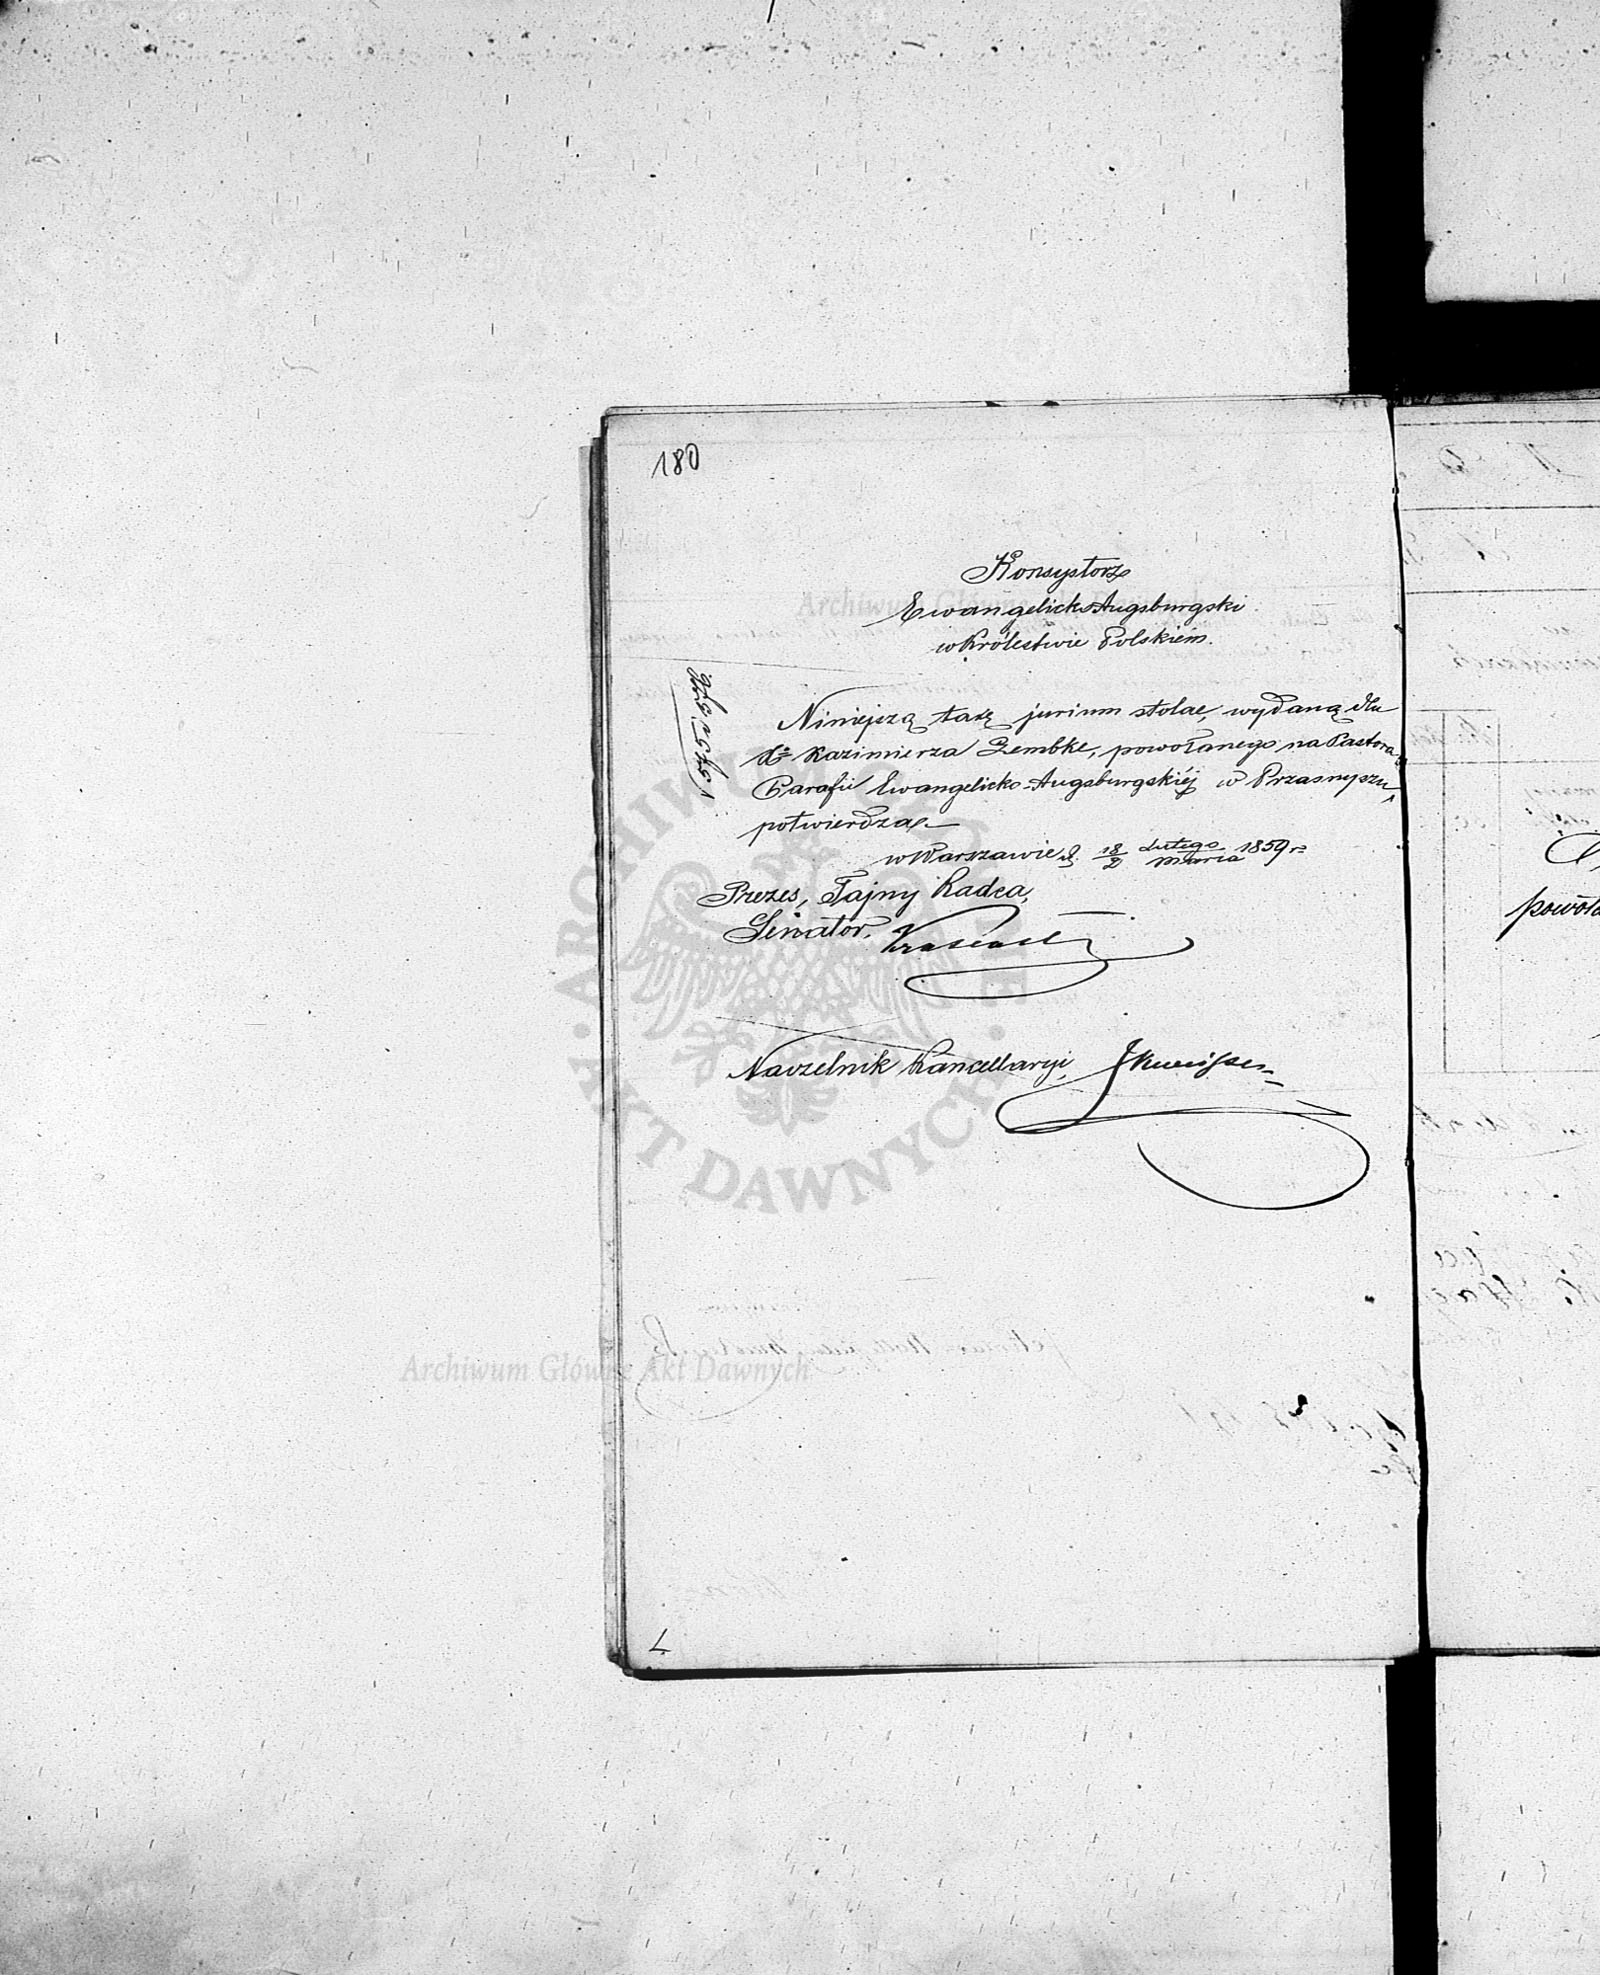 180
Konsystorz
Ewangelicko-Augsburgski
w Królestwie Polskiém.
Niniejszą taxę jurium stolae, wydaną dla
Kazimierza Zembke, powołanego na Pastora
Parafii Ewangelicko-Augsburgskiéj w Przasnyszu
potwierdza.—
w Warszawie d. 18/2 Lutego/Marca 1859 r.
Prezes, Tajny Radca,
Senator,
Naczelnik Kancellaryi,
L
powoła
Archiwum Główne Akt Dawnych
Archiwum Główne Akt Dawnych